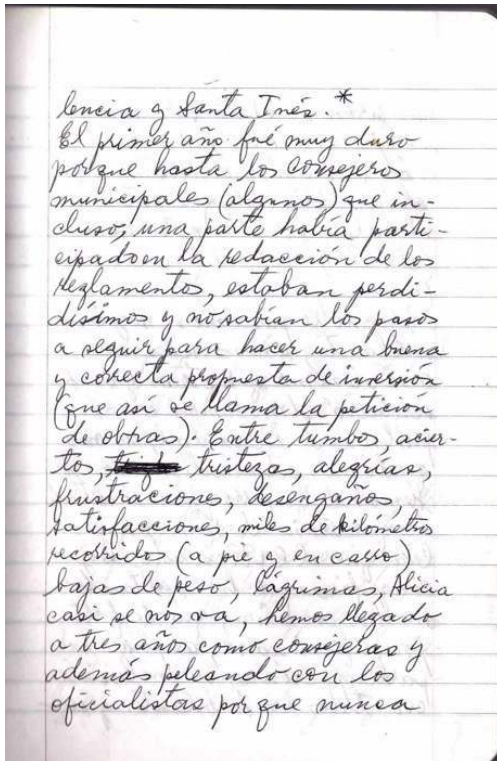 lencia y Santa Inés.*
El primer año fué muy duro
porque hasta los consejeros
municipales (algunos) que in-
cluso, una parte había parti-
cipado en la redacción de los
reglamentos, estaban perdi-
dísimos y no sabían los pasos
a seguir para hacer una buena
y correcta propuesta de inversión
(que así se llama la petición
de obras). Entre tumbos, acier-
tos, tristezas, alegrías,
frustraciones, desengaños,
satisfacciones, miles de kilómetros
recorridos (a pie y en carro)
bajas de peso, lágrimas, Alicia
casi se nos va, hemos llegado
a tres años como consejeras y
además peleando con los
oficialistas porque nunca